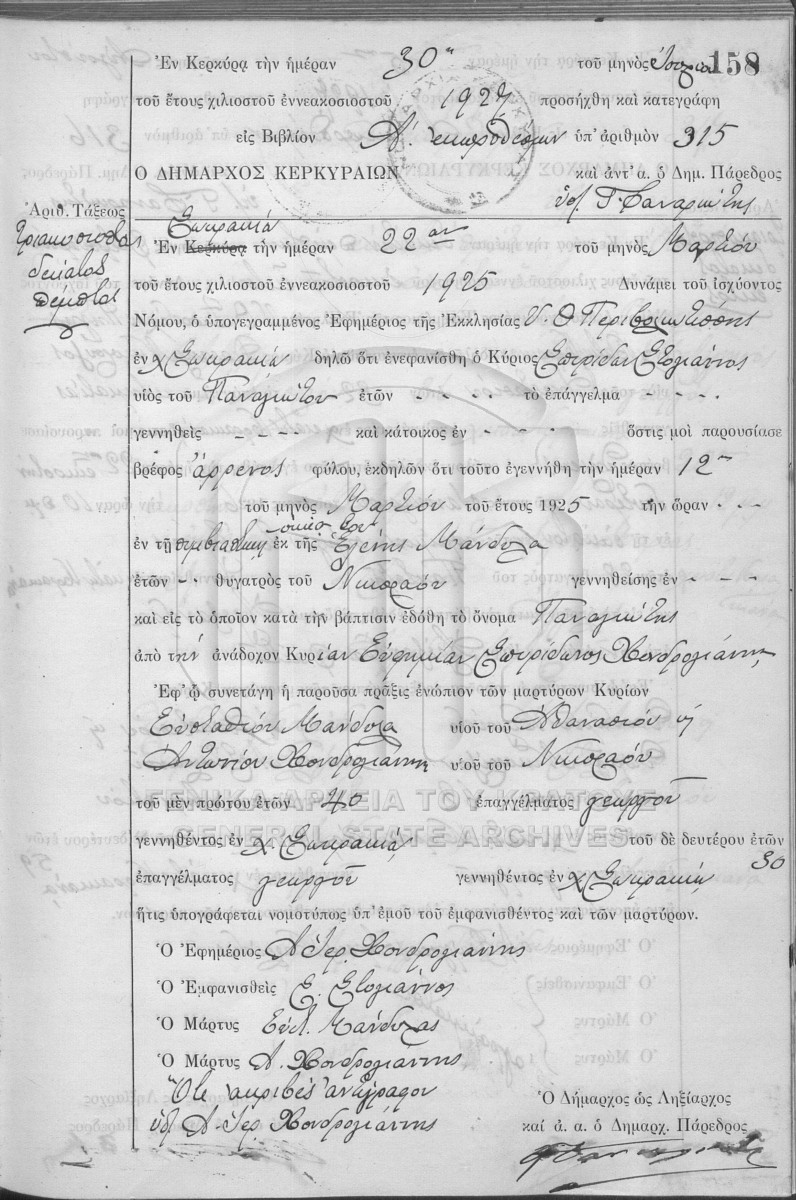 158
Ἐν Κερκύρᾳ τὴν ἡμέραν 30ην τοῦ μηνὸς
τοῦ ἔτους χιλιοστοῦ ἐννεακοσιοστοῦ 1927 προσήχθη καὶ κατεγράφη
εἰς Βιβλίον Α. ἐκπροθέσμων ὑπ' ἀριθμὸν 315
Ο ΔΗΜΑΡΧΟΣ ΚΕΡΚΥΡΑΙΩΝ καὶ ἀντ' α. ὁ Δημ. Πάρεδρος
Γ Φαναριώτης
Ἀριθ. Τάξεως
Τριακοσιοστὸς
δέκατος
πέμπτος
Σωκρακίῳ
Ἐν Κερκύρᾳ τὴν ἡμέραν 22αν τοῦ μηνὸς Μαρτίου
τοῦ ἔτους χιλιοστοῦ ἐννεακοσιοστοῦ 1925 Δυνάμει τοῦ ἰσχύοντος
Νόμου, ὁ ὑπογεγραμμένος Ἐφημέριος τῆς Ἐκκλησίας Υ. Θ Περιβλεπτ
ἐν χ Σωκρακίῳ δηλῶ ὅτι ἐνεφανίσθη ὁ Κύριος Σπυρίδων Στογιάννος
υἱὸς τοῦ Παναγιώτου ἐτῶν - - - - τὸ ἐπάγγελμα - - - .
γεννηθεὶς - - - - καὶ κάτοικος ἐν - - - ὅστις μοὶ παρουσίασε
βρέφος ἄρρενος φύλου, ἐκδηλῶν ὅτι τοῦτο ἐγεννήθη τὴν ἡμέραν 12ην
τοῦ μηνὸς Μαρτίου τοῦ ἔτους 1925 τὴν ὥραν - - -
ἐν τῇ ἐκ τῆς Ἑλένης Μάνδυλα
ἐτῶν - - θυγατρὸς τοῦ Νικολάου γεννηθείσης ἐν - - - -
καὶ εἰς τὸ ὁποῖον κατὰ τὴν βάπτισιν ἐδόθη τὸ ὄνομα Παναγιώτης
ἀπὸ τὴν ἀνάδοχον Κυρίαν Εὐφημίαν Σπυρίδωνος Χονδρογιάννη
Ἐφ' ᾧ συνετάγη ἡ παροῦσα πρᾶξις ἐνώπιον τῶν μαρτύρων Κυρίων
Εὐσταθίου Μάνδυλα υἱοῦ τοῦ Ἀθανασίου
Ἀντωνίου Χονδρογιάννη υἱοῦ τοῦ Νικολάου
τοῦ μὲν πρώτου ἐτῶν 40 ἐπαγγέλματος γεωργοῦ
ΓΕΝΙΚΑ ΑΡΧΕΙΑ ΤΟΥ ΚΡΑΤΟΥΣ
GENERAL STATE ARCHIVES
γεννηθέντος ἐν χ. Σωκρακίῳ τοῦ δὲ δευτέρου ἐτῶν
30
ἐπαγγέλματος γεωργοῦ γεννηθέντος ἐν χ Σωκρακίῳ
ἥτις ὑπογράφεται νομοτύπως ὑπ' ἐμοῦ τοῦ ἐμφανισθέντος καὶ τῶν μαρτύρων.
Ὁ Ἐφημέριος Α Ἱερ. Χονδρογιάννης
Ὁ Ἐμφανισθεὶς Σ. Στογιάννος
Ὁ Μάρτυς Εὐστ. Μάνδυλας
Ὁ Μάρτυς Α. Χονδρογιάννης
Ὅτι ἀκριβὲς ἀντίγραφον
Α. Ἱερ Χονδρογιάννης
Ὁ Δήμαρχος ὡς Ληξίαρχος
καί ἀ. α. ὁ Δημαρχ. Πάρεδρος